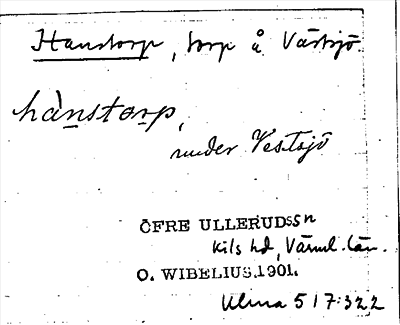 Hanstorp, torp å Västsjö
hànstorp,
under Vestsjö
ÖFRE ULLERUDSsn
Kils hd, Värml. län.
O. WIBELIUS.1901.
Ulma 517:322